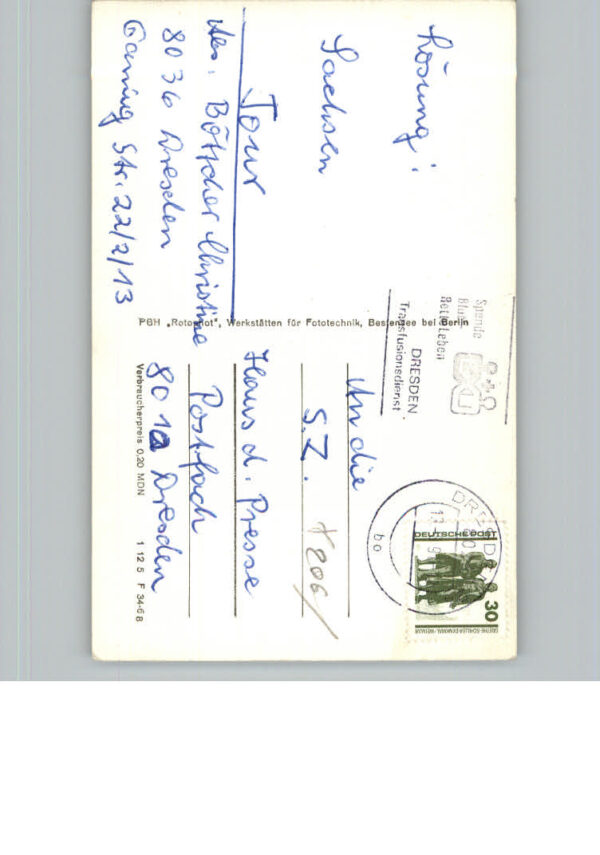 Lösung:
Sachsen
Tour
Abs. Böttcher Christine
8036 Dresden
Gaming Str. 22/2/13
PGH „Rotophot", Werkstätten für Fototechnik, Bestensee bei Berlin
Spende
Blut
Rette Leben
DRESDEN
Transfusionsdienst
DRESDEN
80
bo
DEUTSCHE POST
30
GOETHE-SCHILLER-DENKMAL · WEIMAR
An die
S.Z.
Haus d. Presse
Postfach
8012 Dresden
Verbraucherpreis 0,20 MDN
1 12 5 F 34-68